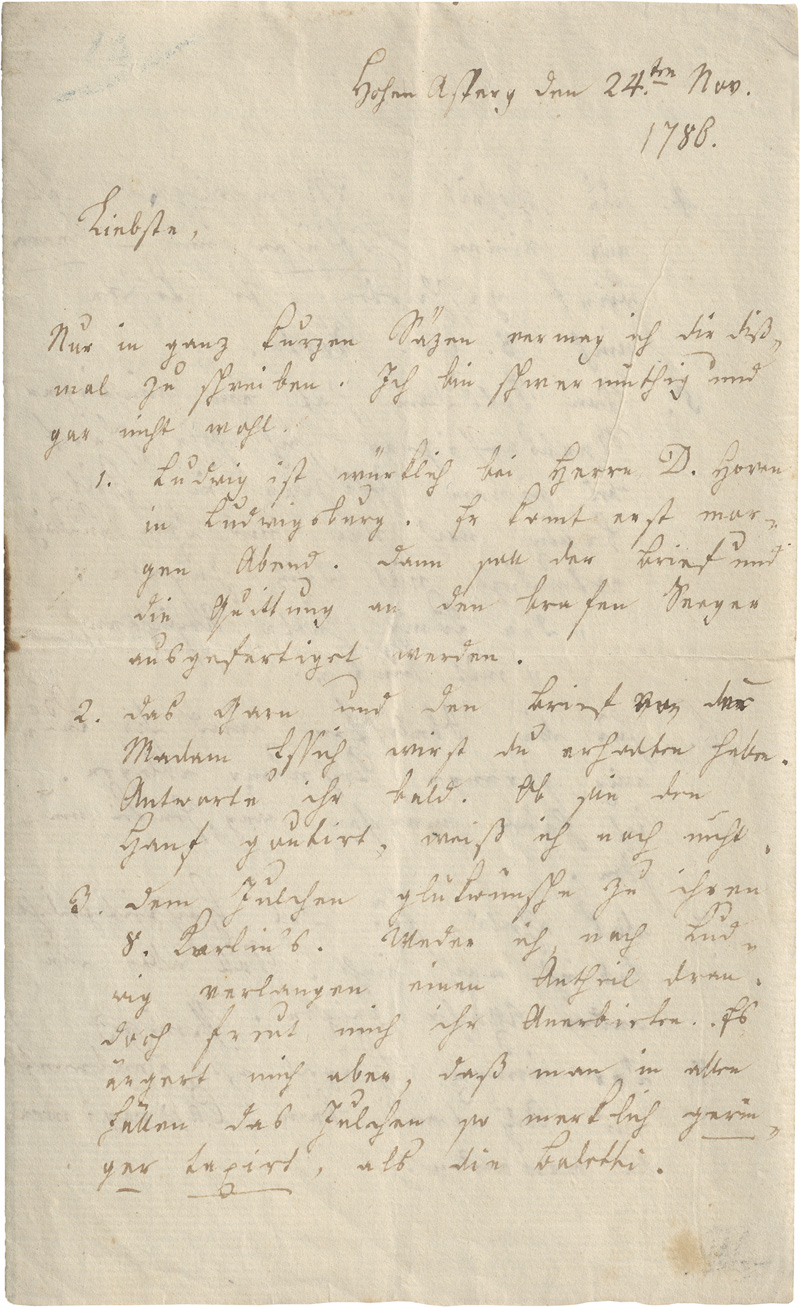 Hohen Asperg den 24.ten Nov.
1786.
Liebste,
Nur in ganz kurzen Säzen vermag ich dir diß„
mal zu schreiben. Ich bin schwermüthig und
gar nicht wohl.
1. Ludwig ist würklich bei Herrn D. Hoven
in Ludwigsburg. Er komt erst mor„
gen Abend. Dann soll der Brief und
die Quittung an den brafen Seeger
ausgefertiget werden.
2. Das Garn und den Brief von der
Madam Essich wirst du erhalten haben.
Antworte ihr bald. Ob sie den
Hanf goutirt, weiß ich noch nicht.
3. Dem Julchen glükwünsche zu ihren
8. Karlin's. Weder ich, noch Lud„
wig verlangen einen Antheil dran.
doch freut mich ihr Anerbieten. Es
ärgert mich aber, daß man in allen
Fällen das Julchen so merklich gerin„
ger taxirt, als die Baletti.